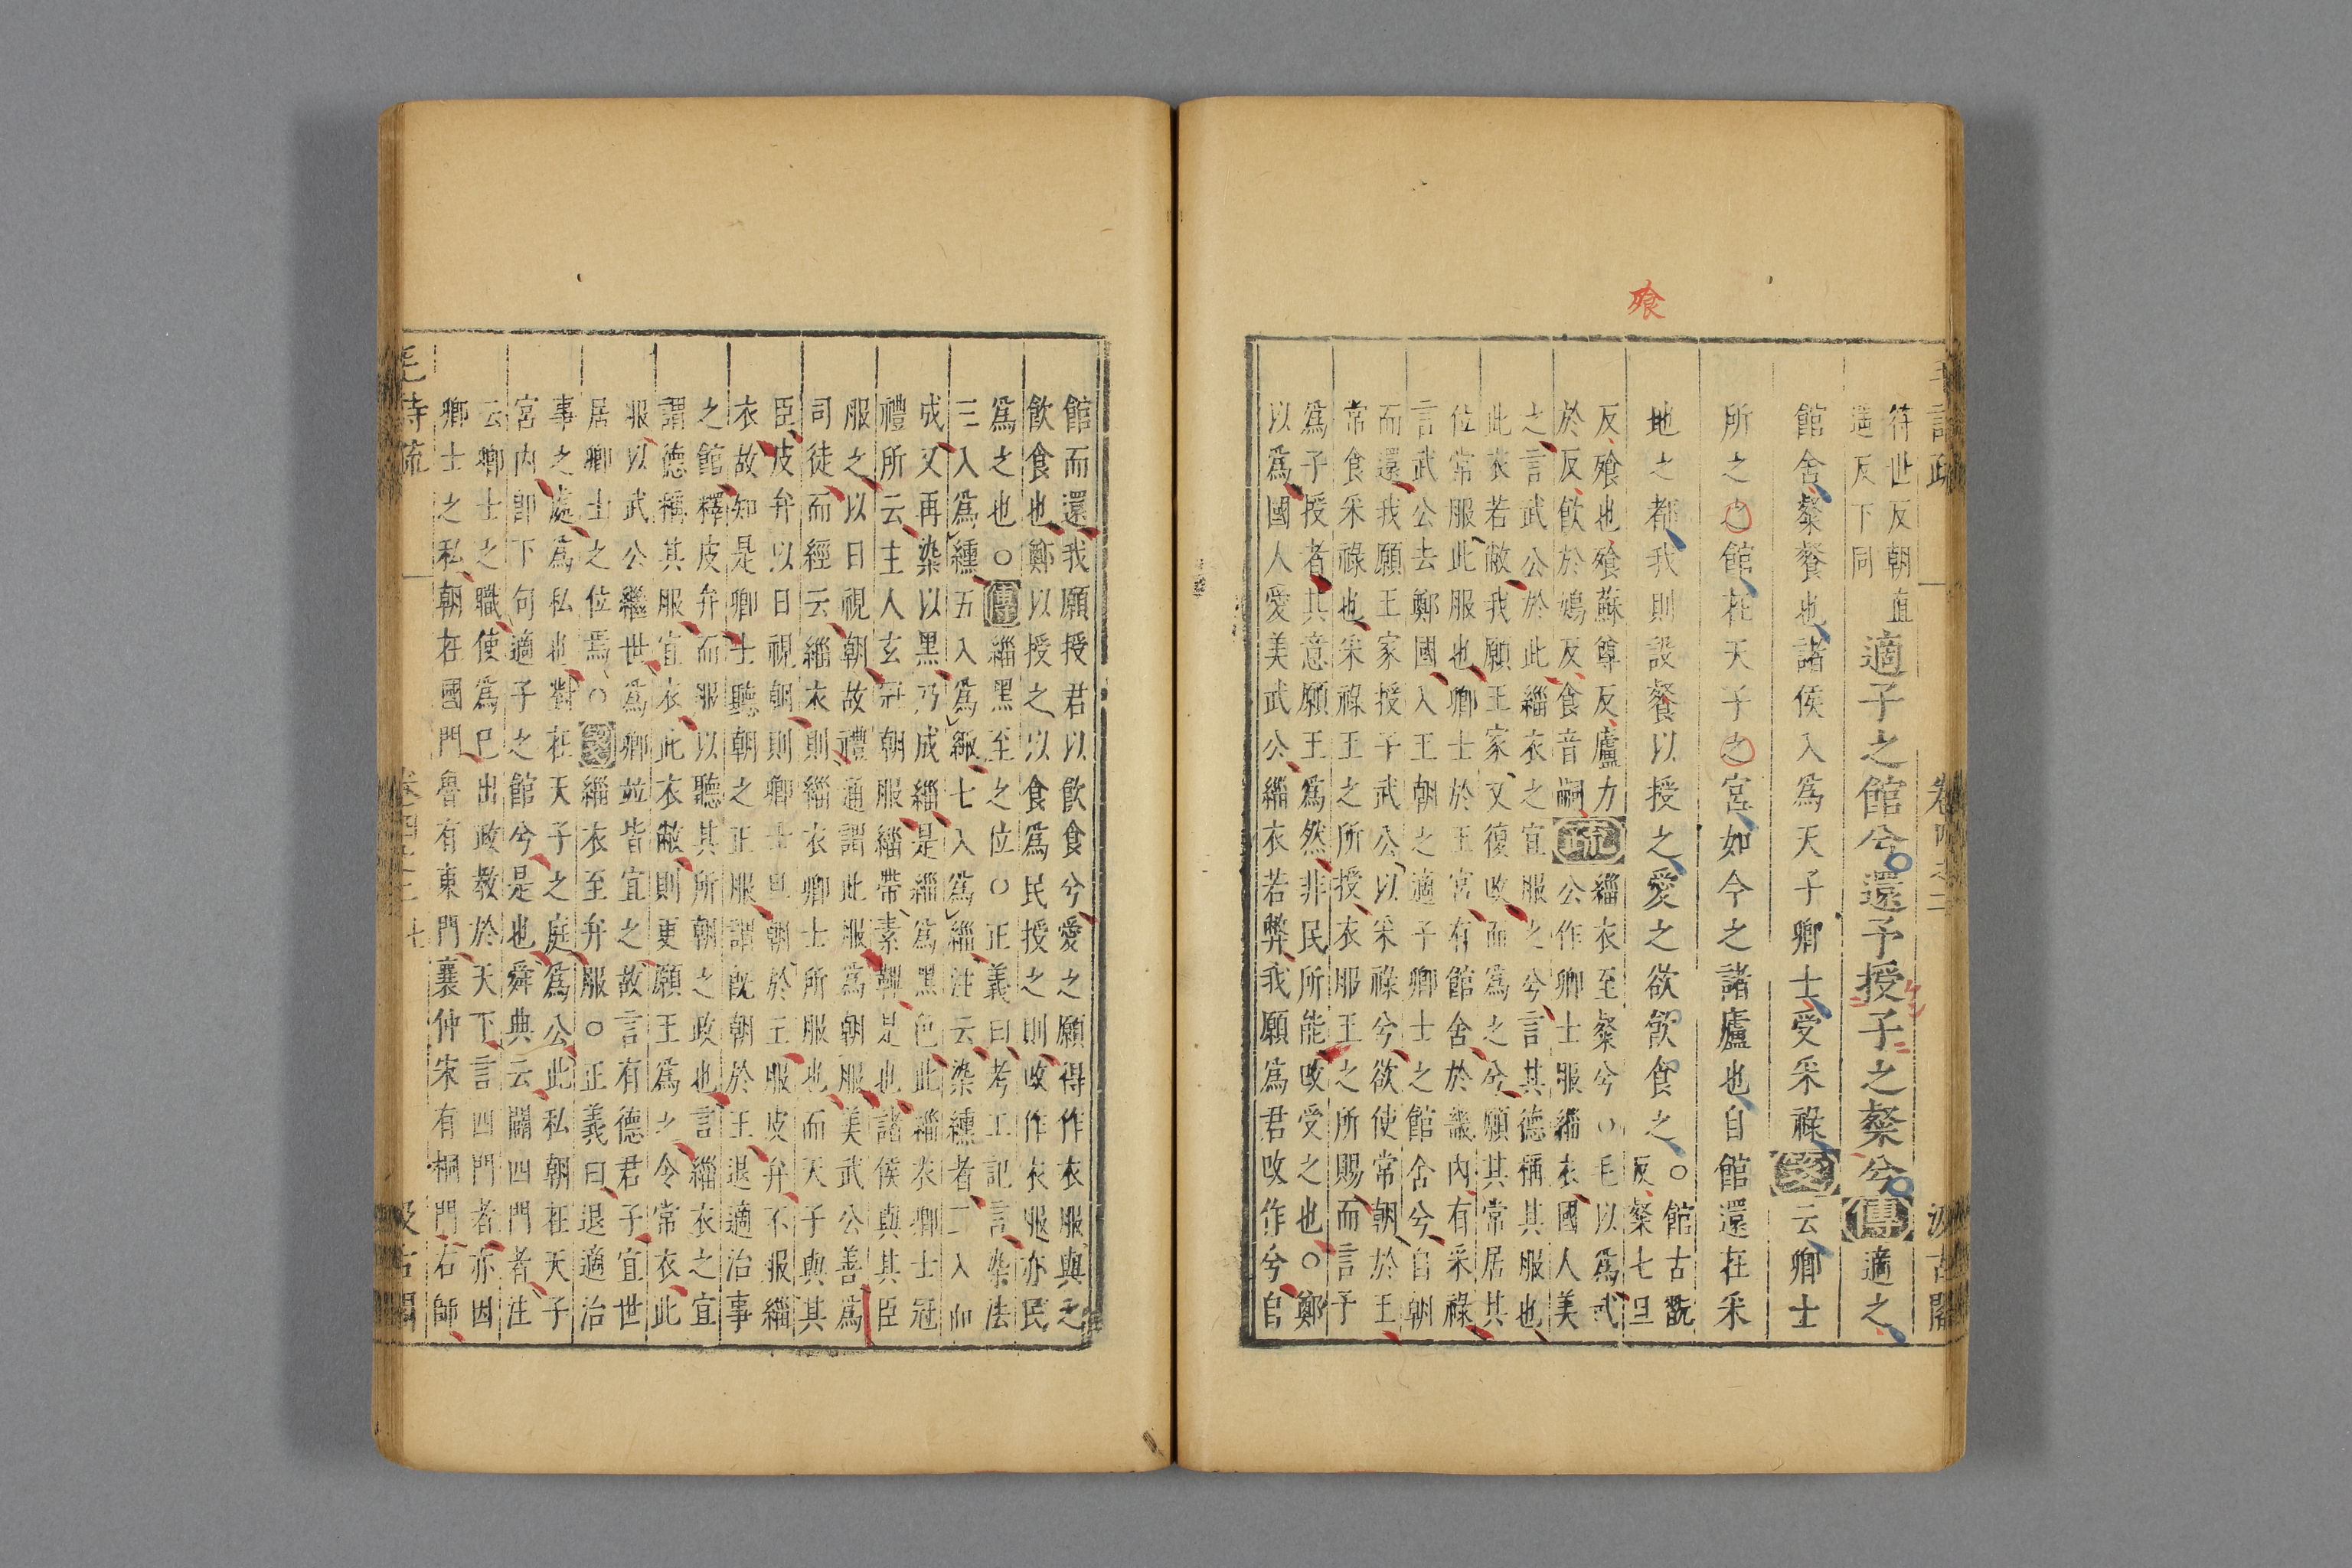 飱
詩疏 卷四之二 汲古閣
待世反朝直
遙反下同
適子之館兮還予授子之粲兮傳適之
館舍粲餐也諸侯入爲天子卿士受采祿箋云卿士
所之之館在天子之宮如今之諸廬也自館還在采
地之都我則設餐以授之愛之欲飲食之
○館古翫
反粲七旦
反飱也飱蘇尊反廬力
於反飲於鴆反食音嗣疏緇衣至粲兮○毛以爲武
公作卿士服緇衣國人美
之言武公於此緇衣之宜服之兮言其德稱其服也
此衣若敝我願王家又復改而爲之兮願其常居其
位常服此服也卿士於王宮有館舍於畿內有采祿
言武公去鄭國入王朝之適子卿士之館舍兮自朝
而還我願王家授子武公以采祿兮欲使常朝於王
常食采祿也采祿王之所授衣服王之所賜而言予
爲子授者其意願王爲然非民所能改受之也○鄭
以爲國人愛美武公緇衣若弊我願爲君改作兮自
館而還我願授君以飲食兮愛之願得作衣服與之
飲食也鄭以授之以食爲民授之則改作衣服亦民
爲之也○傳緇黑至之位○正義曰考工記言染法
三入爲纁五入爲緅七入爲緇注云染纁者三入而
成又再染以黑乃成緇是緇爲黑色此緇衣卿士冠
禮所云主人玄冠朝服緇帶素韠是也諸侯與其臣
服之以日視朝故禮通謂此服爲朝服美武公善爲
司徒而經云緇衣則緇衣卿士所服也而天子與其
臣皮弁以日視朝則卿士旦朝於王服皮弁不服緇
衣故知是卿士聽朝之正服謂既朝於王退適治事
之館釋皮弁而服以聽其所朝之政也言緇衣之宜
謂德稱其服宜衣此衣敝則更願王爲之令常衣此
服以武公繼世爲卿並皆宜之故言有德君子宜世
居卿士之位焉○箋緇衣至弁服○正義曰退適治
事之處爲私也對在天子之庭爲公此私朝在天子
宮內卽下句適子之館兮是也舜典云闢四門者注
云卿士之職使爲已出政教於天下言四門者亦因
卿士之私朝在國門魯有東門襄仲宋有桐門右師
毛詩疏 卷四之二 七 汲古閣